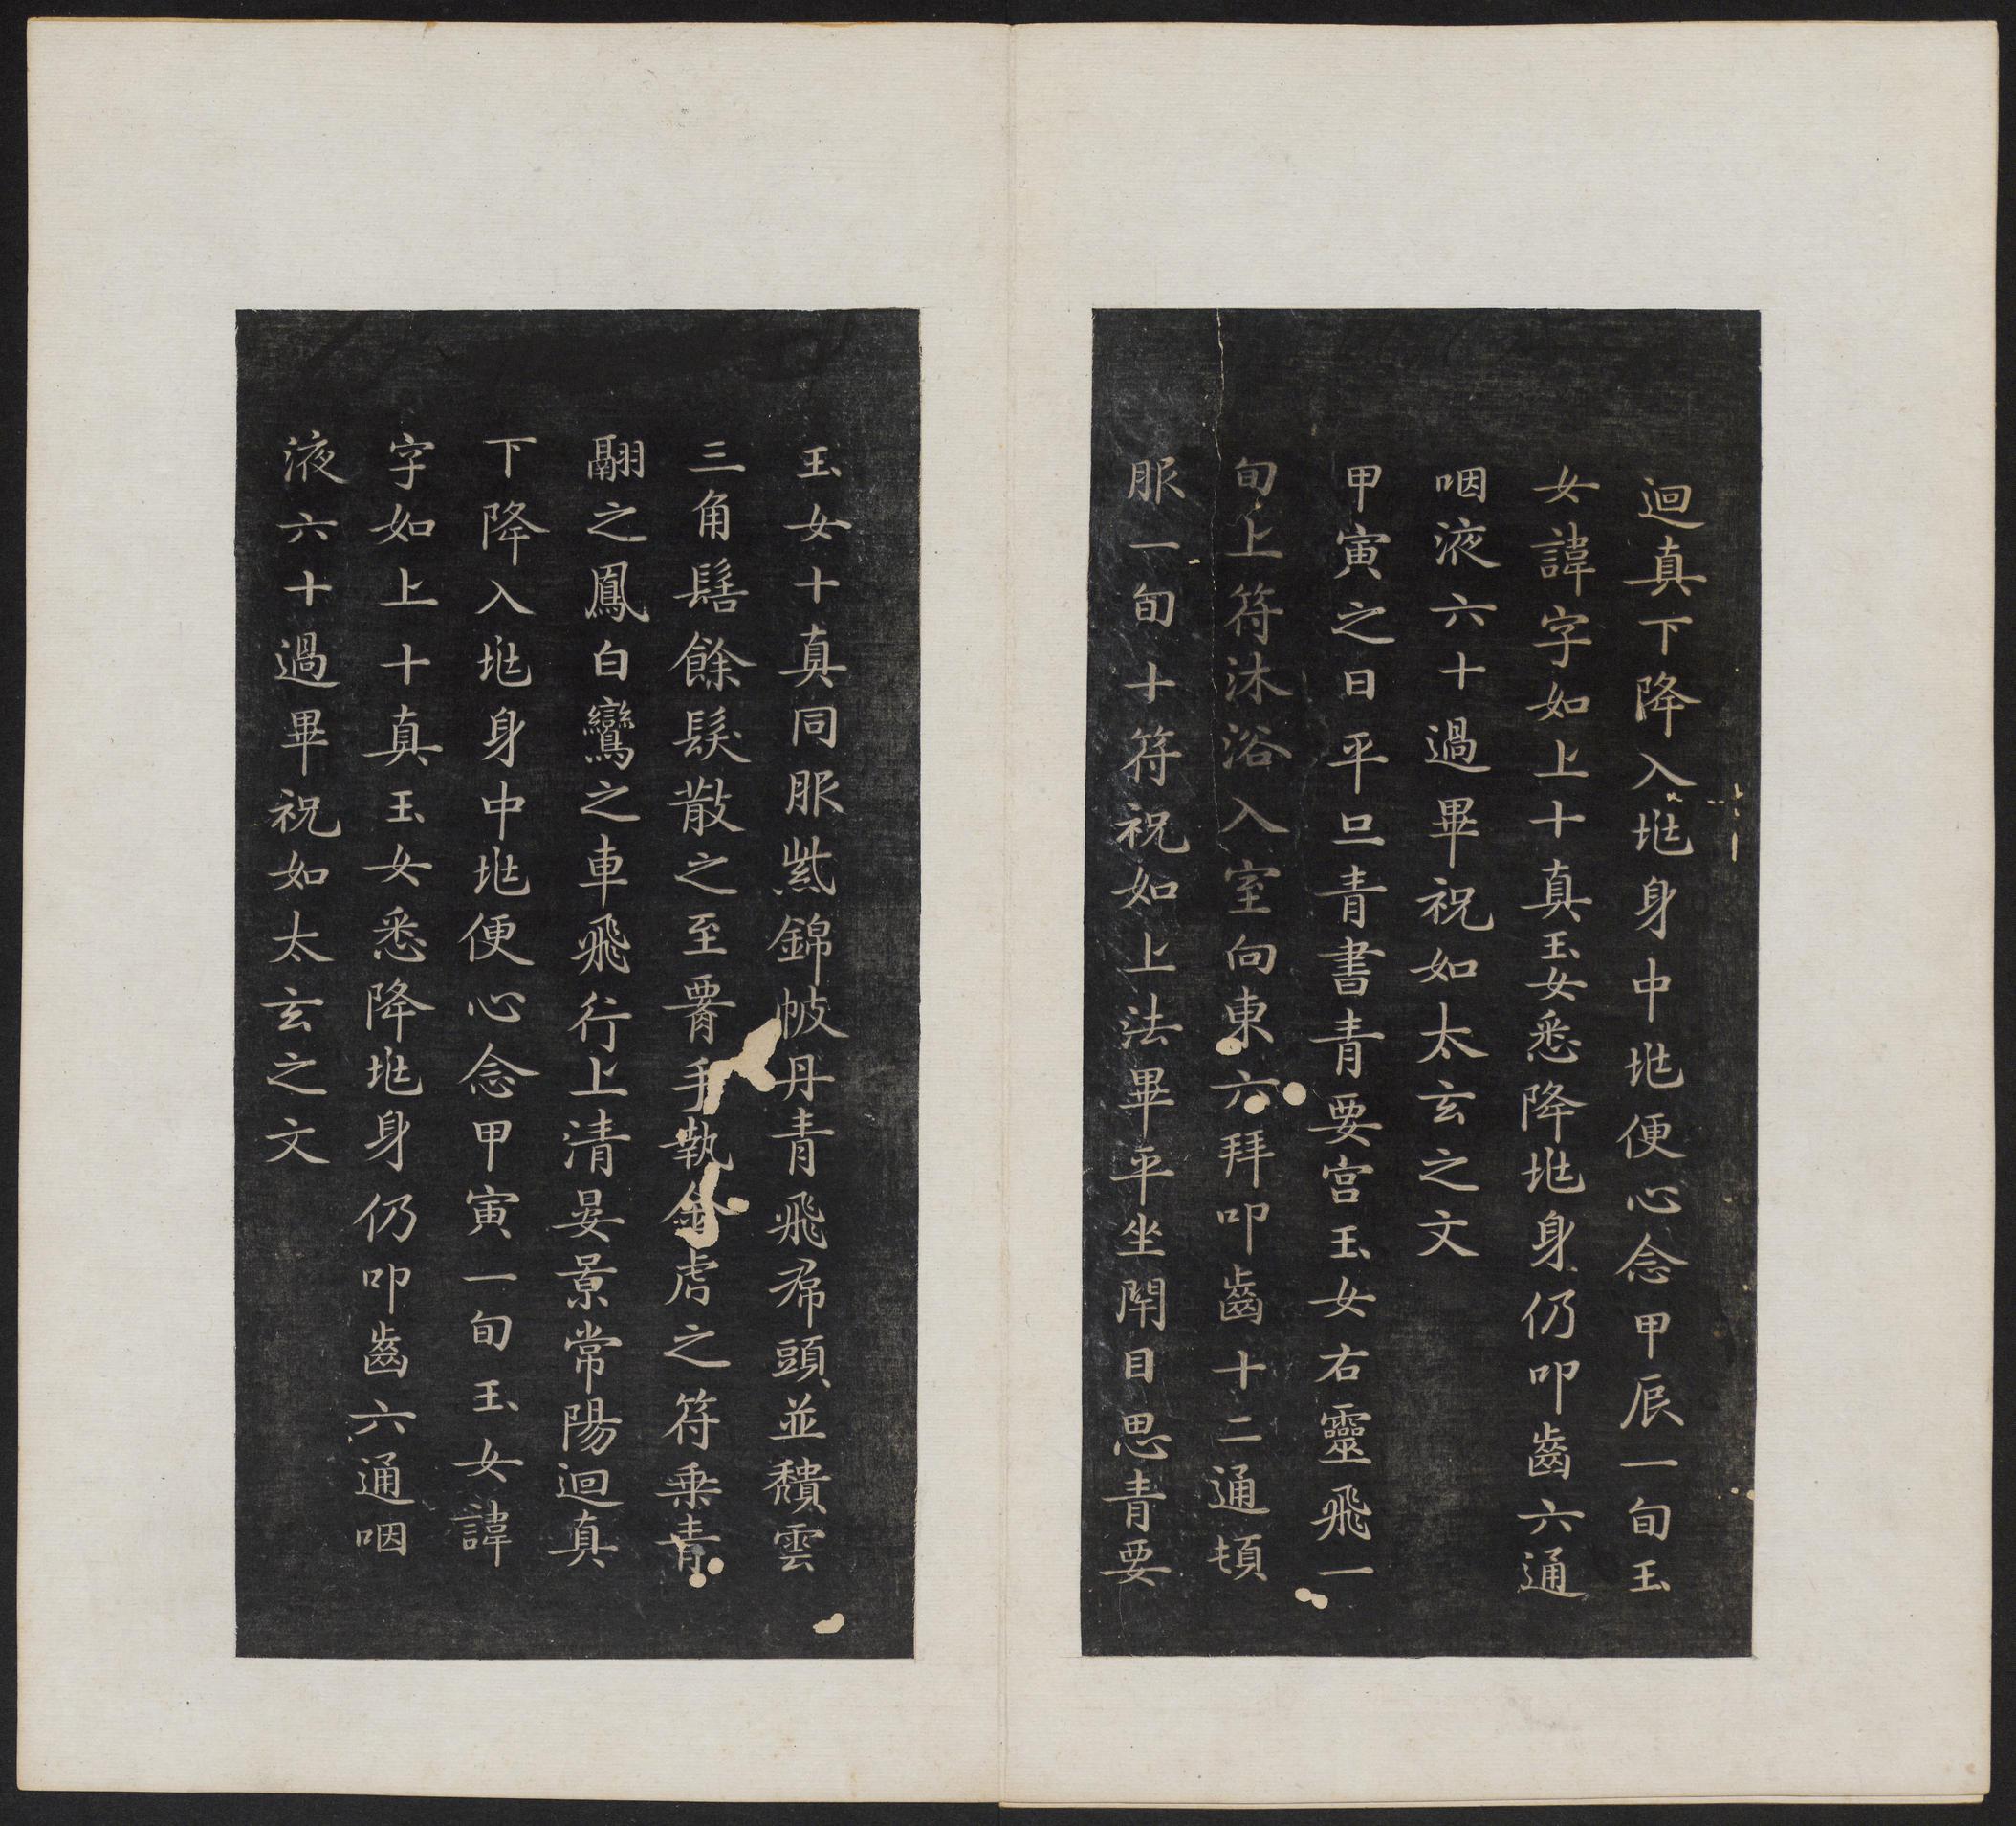 迴真下降入兆身中兆便心念甲辰一旬玉
女諱字如上十真玉女悉降兆身仍叩齒六通
咽液六十過畢祝如太玄之文
甲寅之日平旦青書青要宮玉女右靈飛一
旬上符沐浴入室向東六拜叩齒十二通頓
服一旬十符祝如上法畢平坐閉目思青要
玉女十真同服紫錦帔丹青飛帬頭並穨雲
三角髻餘髮散之至署手執金虎之符乘青
翮之鳳白鸞之車飛行上清晏景常陽迴真
下降入兆身中兆便心念甲寅一旬玉女諱
字如上十真玉女悉降兆身仍叩齒六通咽
液六十過畢祝如太玄之文